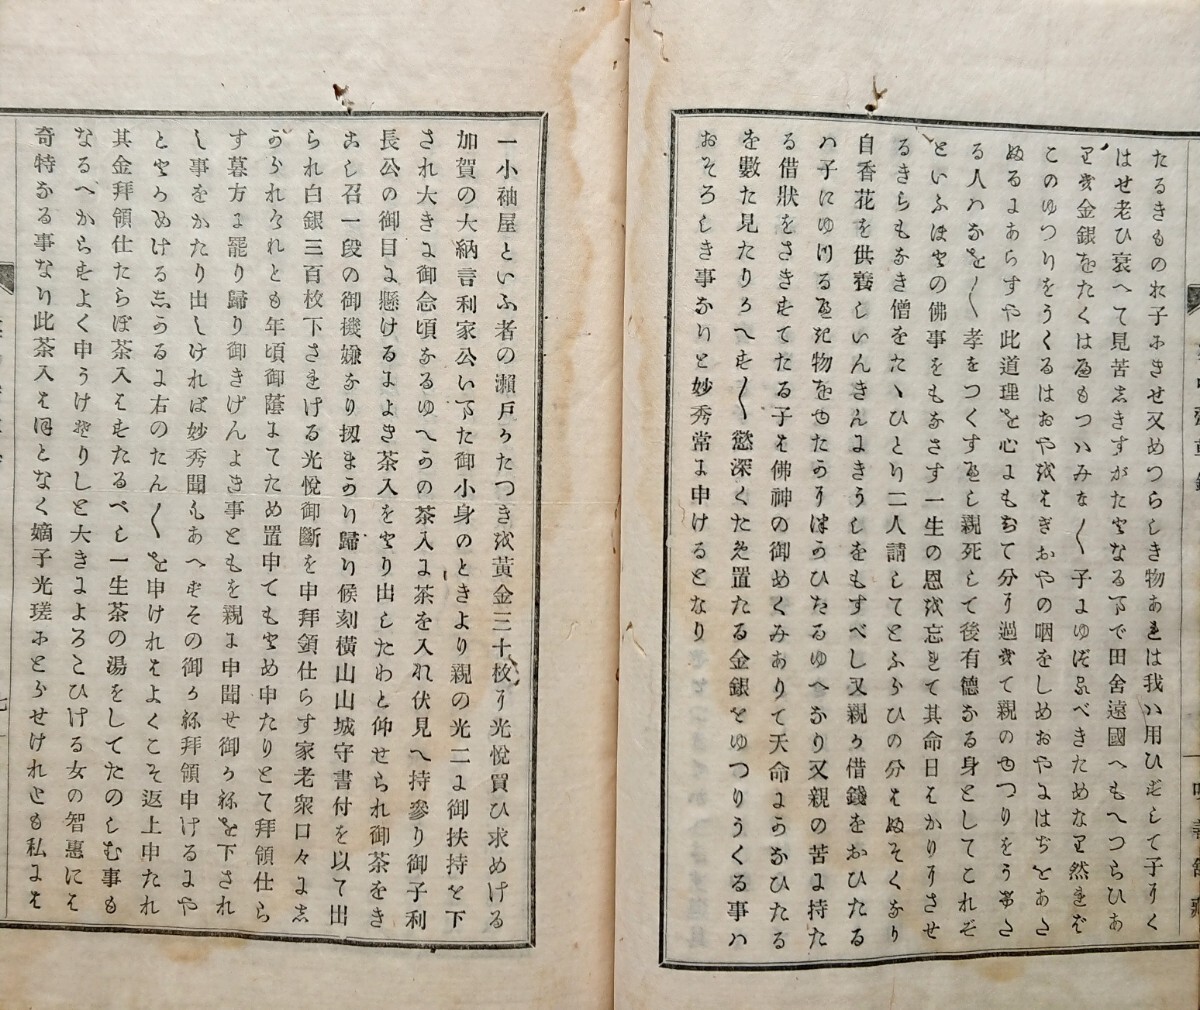 たるきものれ子にきせ又めつらしき物あれは我ハ用ひずして子にく
はせ老ひ衰へて見苦しきすがたになるまで田舍遠國へもへつらひあ
りき金銀をたくはゆもつハみな〱子にゆづるべきためなり然れば
このゆつりをうくるはおやをはぎおやの咽をしめおやにはぢをあた
ぬるにあらすや此道理を心にもちて分に過ぎて親のゆつりをうけた
る人ハなを〱孝をつくすべし親死して後有德なる身としてこれぞ
といふほどの佛事をもなさす一生の恩を忘れて其命日はかりにさせ
るきらもなき僧をたゝひとり二人請してとふらひの分はぬそくなり
自香花を供養しいんきんにきうしをもすべし又親か借錢をおひたる
ハ子にゆつるべき物をもたらすはらひたるゆへなり又親の苦に持た
る借狀をさきすてたる子は佛神の御めくみありて天命にかなひたる
を數た見たりかへす〱慾深くたを置たる金銀をゆつりうくる事ハ
おそろしき事なりと妙秀常に申けるとなり
一小袖屋といふ者の瀨戸かたつきを黃金三十枚に光悅買ひ求めける
加賀の大納言利家公いまた御小身のときより親の光二に御扶持を下
され大きに御念頃なるゆへかの茶入に茶を入れ伏見へ持參り御子利
長公の御目に懸けるによき茶入をとり出したわと仰せられ御茶をき
こし召一段の御機嫌なり扨まかり歸り候刻橫山山城守書付を以て出
られ白銀三百枚下されける光悅御斷を申拜領仕らす家老衆口々にし
かられけれとも年頃御蔭にてため置申てもとめ申たりとて拜領仕ら
す暮方に罷り歸り御きげんよき事ともを親に申聞せ御かねを下され
し事をかたり出しければ妙秀聞もあへすその御かね拜領申けるにや
ととかめけるしかるに右のたん〱を申けれはよくこそ返上申たれ
其金拜領仕たらば茶入はすたるべし一生茶の湯をしてたのしむ事も
なるへからすよく申うけざりしと大きによろこひける女の智惠には
奇特なる事なり此茶入はほとなく嫡子光瑳にとらせけれとも私には